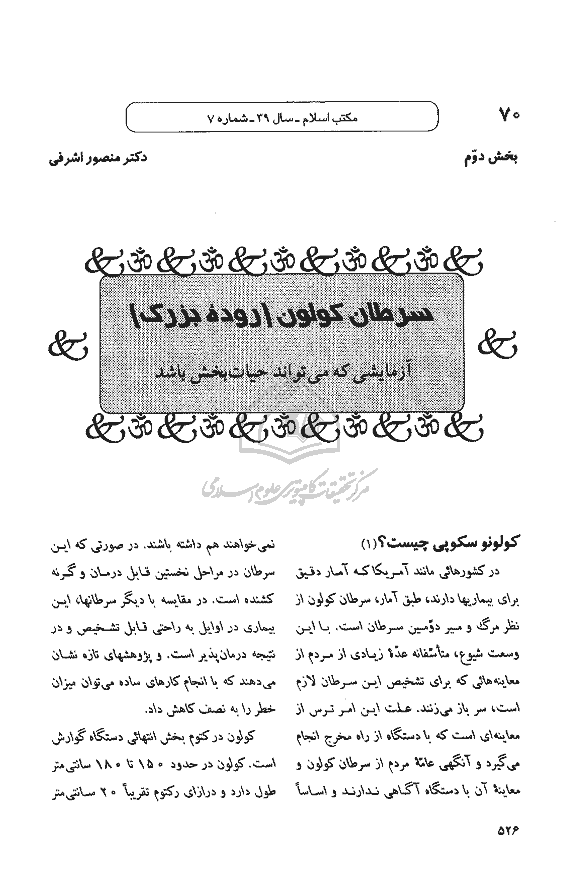 ۷۰
مکتب اسلام ـ سال ۳۹ ـ شماره ۷
بخش دوّم
دکتر منصور اشرفی
سرطان کولون (رودهٔ بزرگ)
آزمایشی که می‌تواند حیات‌بخش باشد
مرکز تحقیقات کامپیوتری علوم اسلامی
کولونو سکوپی چیست؟ (۱)
در کشورهائی مانند آمریکا که آمار دقیق
برای بیماریها دارند، طبق آمار، سرطان کولون از
نظر مرگ و میر دوّمین سرطان است. با این
وسعت شیوع، متأسّفانه عدّهٔ زیادی از مردم از
معاینه‌هائی که برای تشخیص این سرطان لازم
است، سر باز می‌زنند. علت این امر ترس از
معاینه‌ای است که با دستگاه از راه مخرج انجام
می‌گیرد و آنگهی عامّهٔ مردم از سرطان کولون و
معاینهٔ آن با دستگاه آگاهی ندارند و اساساً
نمی‌خواهند هم داشته باشند. در صورتی که این
سرطان در مراحل نخستین قابل درمان و گرنه
کشنده است. در مقایسه با دیگر سرطانها، این
بیماری در اوایل به راحتی قابل تشخیص و در
نتیجه درمان‌پذیر است. و پژوهشهای تازه نشان
می‌دهند که با انجام کارهای ساده می‌توان میزان
خطر را به نصف کاهش داد.
کولون در کتوم بخش انتهائی دستگاه گوارش
است. کولون در حدود ۱۵۰ تا ۱۸۰ سانتی‌متر
طول دارد و درازای رکتوم تقریباً ۲۰ سانتی‌متر
۵۲۶